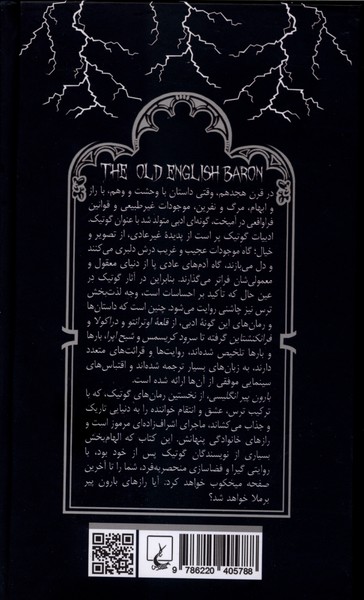 THE OLD ENGLISH BARON
در قرن هجدهم، وقتی داستان با وحشت و وهم، با راز
و ابهام، مرگ و نفرین، موجودات غیرطبیعی و قوانین
فراواقعی در آمیخت، گونه‌ای ادبی متولد شد با عنوان گوتیک.
ادبیات گوتیک پر است از پدیدهٔ غیرعادی، از تصویر و
خیال؛ گاه موجودات عجیب و غریب درش دلبری می‌کنند
و دل می‌بازند، گاه آدم‌های عادی پا از دنیای معقول و
معمولی‌شان فراتر می‌گذارند. بنابراین در آثار گوتیک در
عین حال که تأکید بر احساسات است، وجه لذت‌بخش
ترس نیز چاشنی روایت می‌شود. چنین است که داستان‌ها
و رمان‌های این گونهٔ ادبی، از قلعهٔ اوترانتو و دراکولا و
فرانکنشتاین گرفته تا سرود کریسمس و شبح اپرا، بارها
و بارها تلخیص شده‌اند، روایت‌ها و قرائت‌های متعدد
دارند، به زبان‌های بسیار ترجمه شده‌اند و اقتباس‌های
سینمایی موفقی از آن‌ها ارائه شده است.
بارون پیر انگلیسی، از نخستین رمان‌های گوتیک، که با
ترکیب ترس، عشق و انتقام خواننده را به دنیایی تاریک
و جذاب می‌کشاند، ماجرای اشراف‌زاده‌ای مرموز است و
رازهای خانوادگی پنهانش. این کتاب که الهام‌بخش
بسیاری از نویسندگان گوتیک پس از خود بود، با
روایتی گیرا و فضاسازی منحصربه‌فرد، شما را تا آخرین
صفحه میخکوب خواهد کرد: آیا رازهای بارون پیر
برملا خواهد شد؟
9 786220 405788